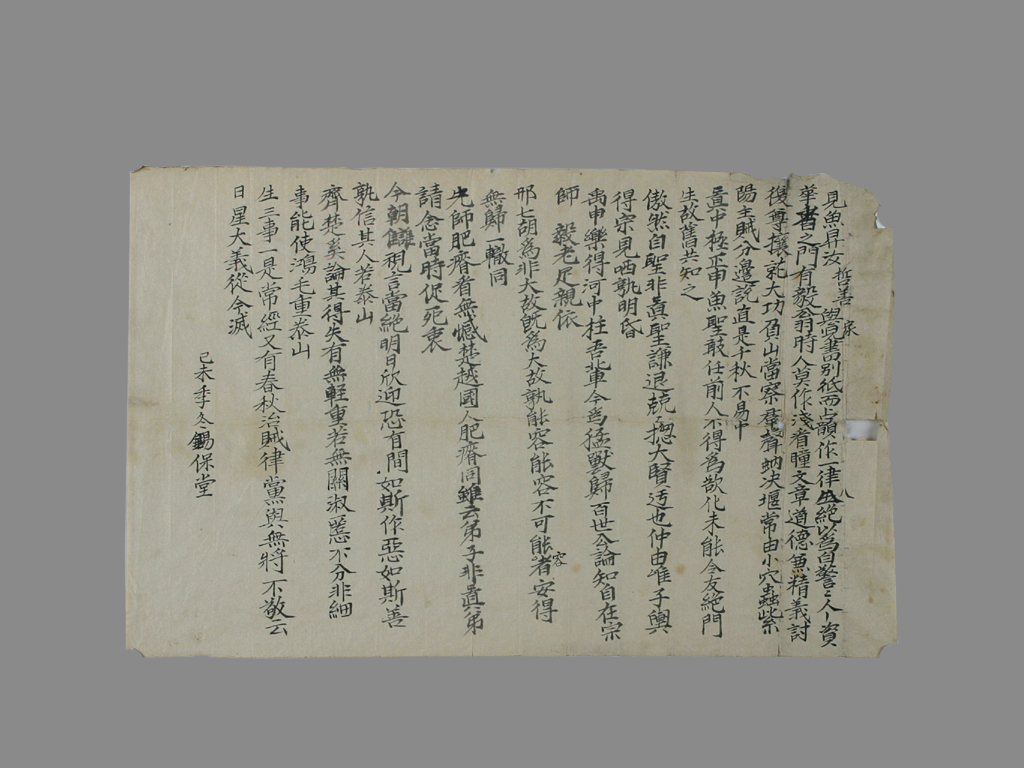 見魚昇汝哲善㡳與高書別紙而占韻作一律八絶以爲自警之人資
華者之門有毅翁時人莫作淺看瞳文章道德兼精義討
復尊攘託大功負山當察羣聲蚋决堰常由小穴蟲紫
陽主賊分邊說直是千秋不易中
置中極丕申魚聖鼓任前人不得爲欲化未能今友絶門
生故舊共知之
傲然自聖非眞聖謙退兢揔大賢迃也仲由唯子輿
得宗見哂孰明昏
禹申樂得河中柱吾北車今爲猛獸歸百世公論知自在宗
師 毅老足親依
邢七胡爲非大故旣爲大故孰能容能容不可能容者安得
無歸一轍同
先師肥瘠看無憾楚越國人肥瘠同雖云弟子非眞弟
請念當時促死衷
今朝雖 言當絶明日欣迎恐有間如斯作惡如斯善
孰信其人若泰山
齊楚奚論其得失有無輕重若無關淑慝不分非細
事能使鴻毛重泰山
生三事一是常經又有春秋治賊律黨與無將不敬云
日星大義從今滅
己未季冬錫保堂